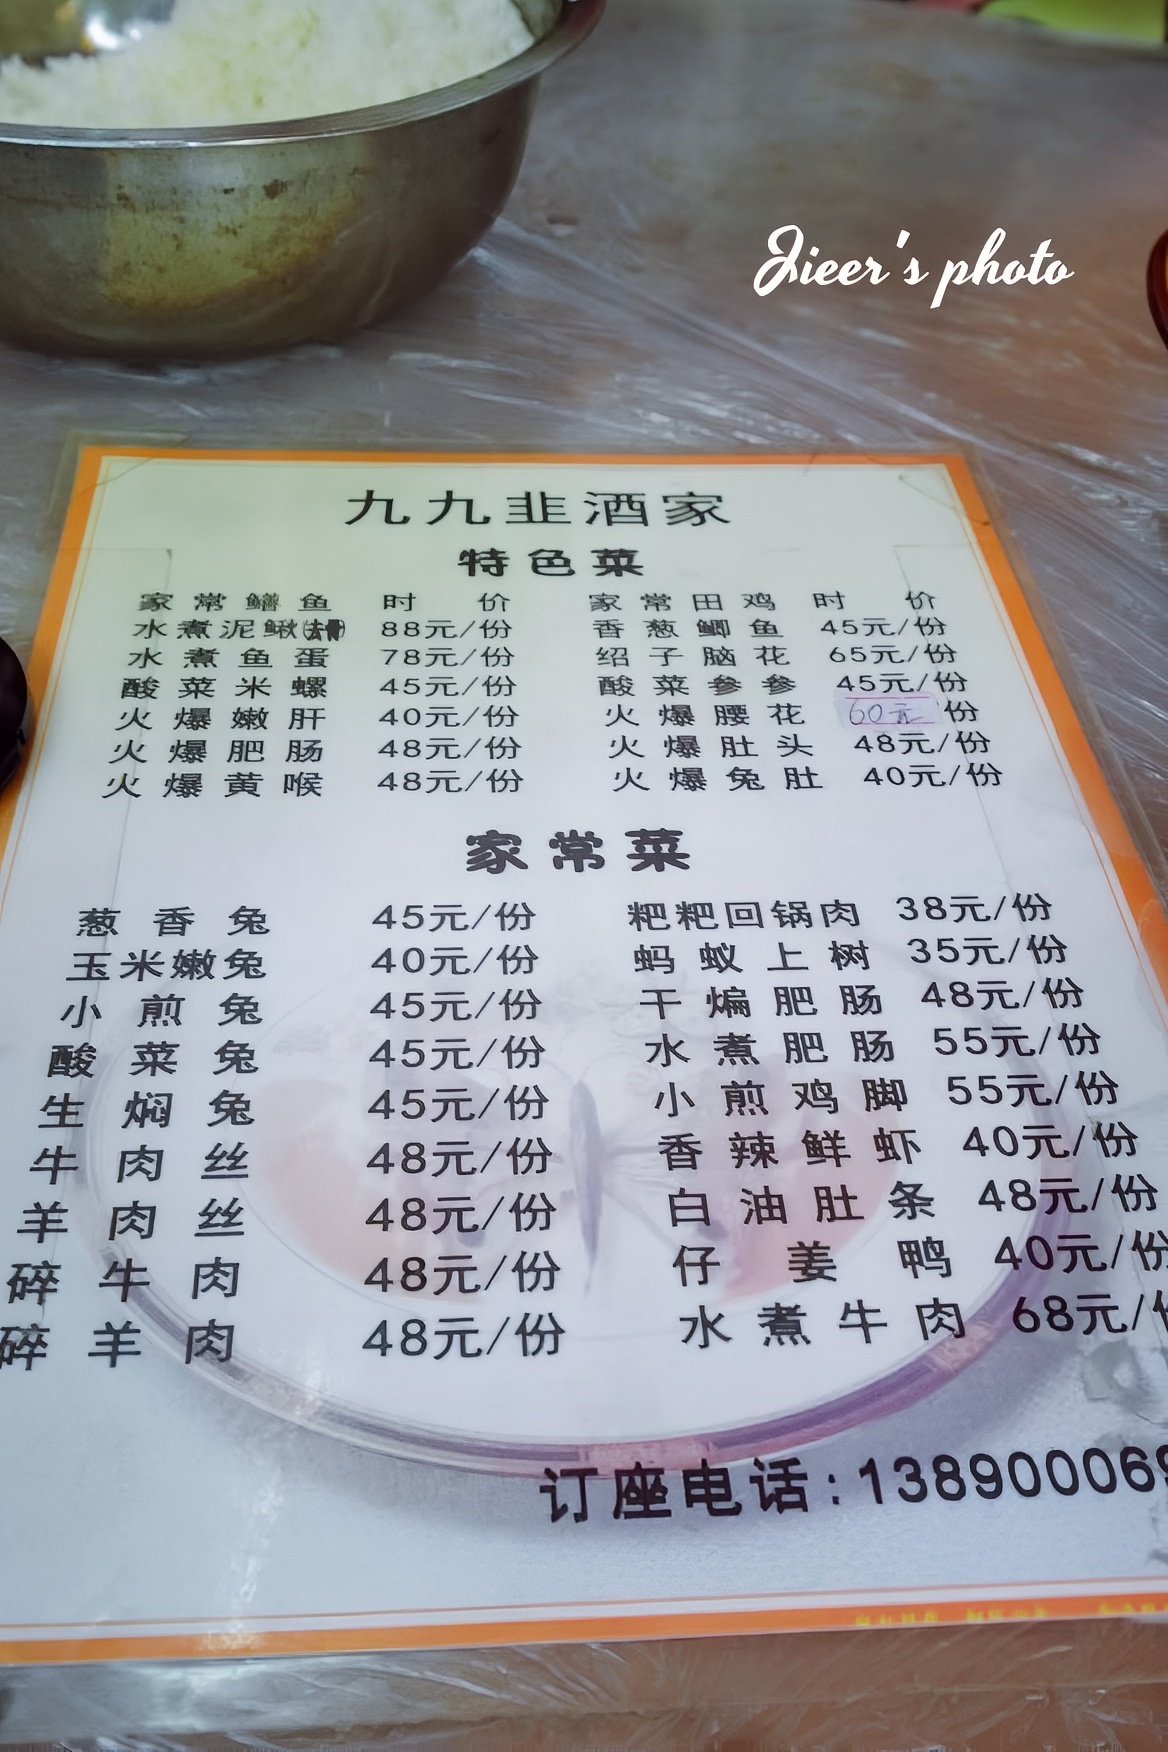 Jieer's photo
九九韭酒家
特色菜
家常鳝鱼 时价 家常田鸡 时价
水煮泥鳅(去骨) 88元/份 香葱鲫鱼 45元/份
水煮鱼蛋 78元/份 绍子脑花 65元/份
酸菜米螺 45元/份 酸菜参参 45元/份
火爆嫩肝 40元/份 火爆腰花 60元/份
火爆肥肠 48元/份 火爆肚头 48元/份
火爆黄喉 48元/份 火爆兔肚 40元/份
家常菜
葱香兔 45元/份 粑粑回锅肉 38元/份
玉米嫩兔 40元/份 蚂蚁上树 35元/份
小煎兔 45元/份 干煸肥肠 48元/份
酸菜兔 45元/份 水煮肥肠 55元/份
生焖兔 45元/份 小煎鸡脚 55元/份
牛肉丝 48元/份 香辣鲜虾 40元/份
羊肉丝 48元/份 白油肚条 48元/份
碎牛肉 48元/份 仔姜鸭 40元/份
碎羊肉 48元/份 水煮牛肉 68元/
订座电话:138900069